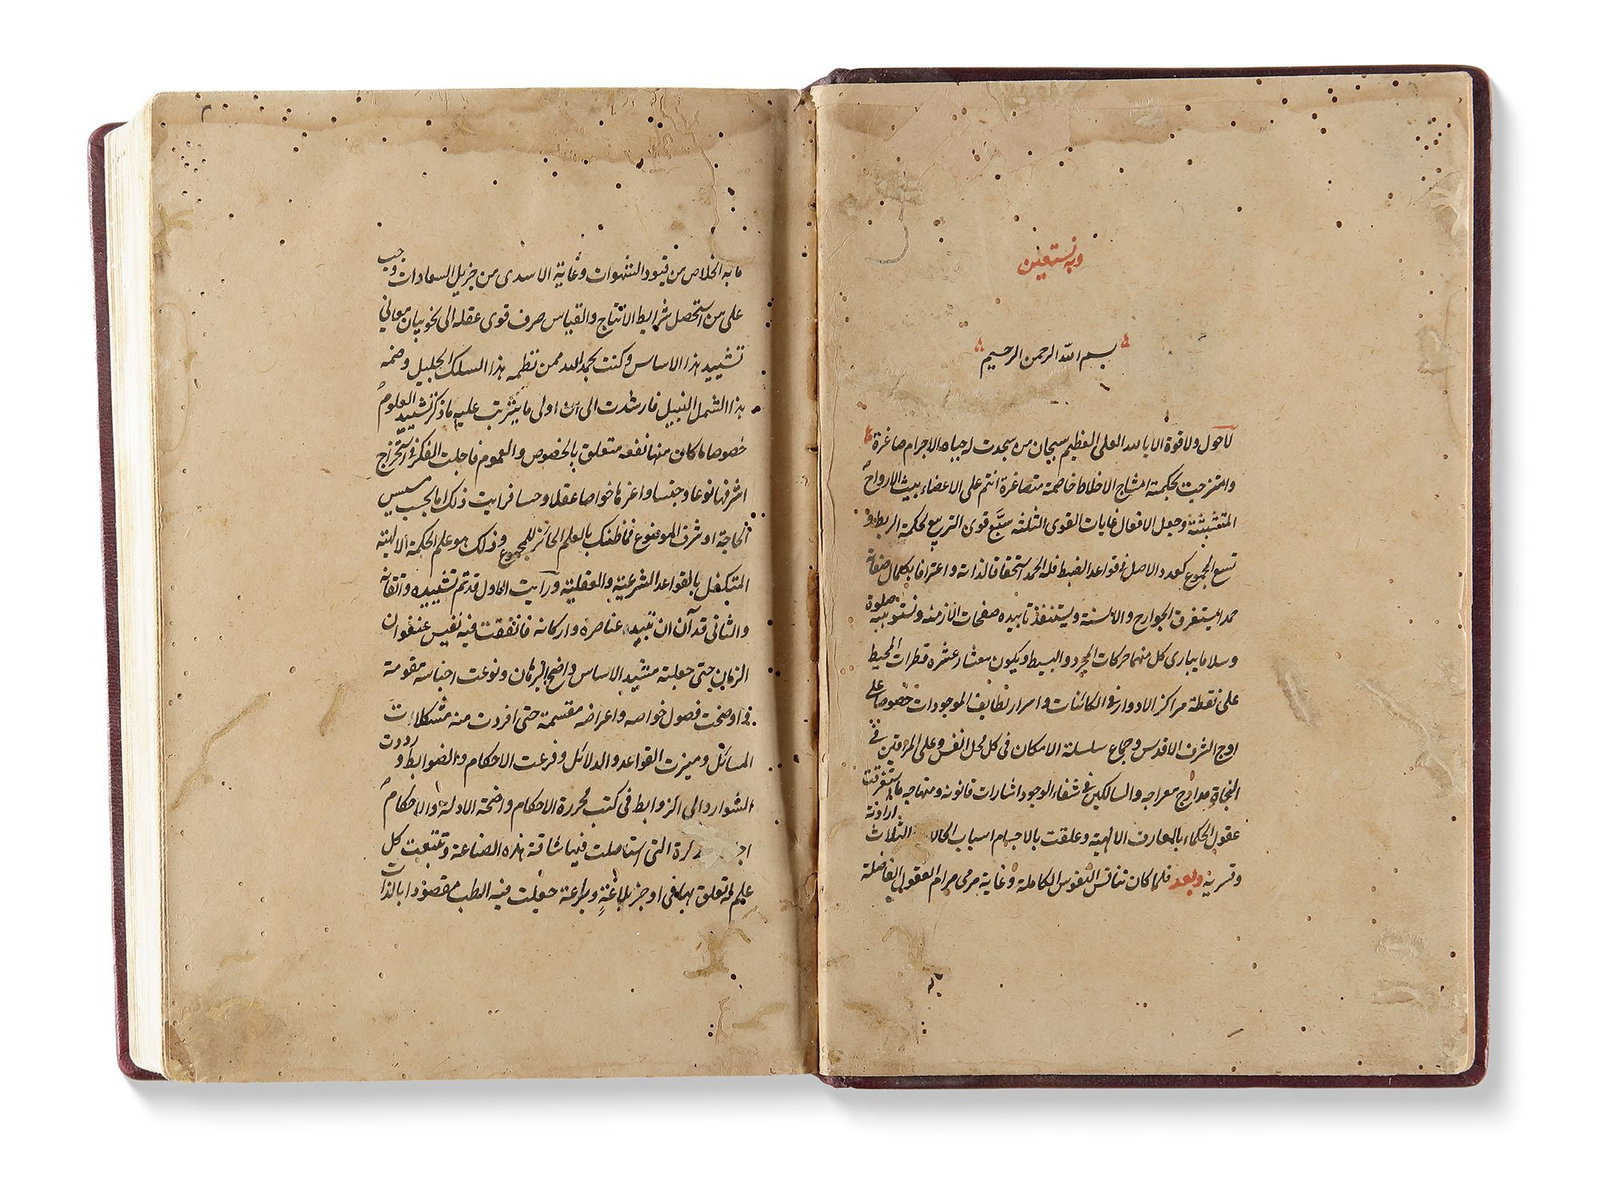 وبه نستعين
بسم الله الرحمن الرحيم
لاحول ولاقوة الا بالله العلى العظيم سبحان من سجدت له جباه الاجرام صاغرة
وامتزجت بحكمته امشاج الاخلاط خاضعة متصاغرة انتم على الاعضاء ببث الارواح
المتشبثة وجعل الافعال غايات القوى الثلثة سبَّع قوى التربيع لحكمة الربط و
تسع المجموع كعدد الاصل فى قواعد الضبط فله الحمد استحقاقا لذاته واعترافا بكمال صفاته
حمدا يستغرق الجوارح والالسنة ويستنفذ تابيده صفحات الازمنة ونستوهبه صلوة
وسلاما يبارى كل منهما حركات المجرد والبسيط ويكون معشار عشره قطرات المحيط
على نقطة مراكز الادوار فى الكائنات واسرار لطايف الموجودات خصوصا على
اوج الشرف الاقدس وجماع سلسلة الامكان فى كل محل انفس وعلى المراقين فى
النجاة مدارج معراجه والسالكين فى شفاء الوجود اشارات قانونه ومنهاجه ما استغرقت
عقول الحكماء بالمعارف الالهية وعلقت بالاجسام اسباب الحالات الثلاث ارادته
وقسرية وبعد فلما كان تنافس النفوس الكاملة وغاية مرمى مرام العقول الفاضلة
ما به الخلاص من قيود الشهوات وغاية الاسدى من جزيل السعادات وجب
على من استحصل شرايط الانتاج والقياس صرف قوى عقله الى نحو بيان معالى
تشييد هذا الاساس وكنت بحمد الله ممن نظمه هذا السلك الجليل وضمه
هذا الشمل النبيل فارشدت الى ان اولى ما يترتب عليه ماذكر تشييد العلوم
خصوصا ما كان منها نفعه متعلق بالخصوص والعموم فاجلت الفكر فى استخراج
اشرفها نوعا وجنسا واعزها خواصا عقلا وحسا فرايت ذلك اما بحسب مسيس
الحاجة او شرف الموضوع فما ظنك بالعلم الحائز للمجموع وذلك هو علم الحكمة الالهية
المتكفل بالقواعد الشرعية والعقلية ورايت الاول قد تم تشييده واتقانه
والثانى قد آن ان تبيد عناصره واركانه فانفقت فيه نفيس عنفوان
الزمان حتى جعلته مشيد الاساس واضح البرهان ونوعت اجناسه مقومة
فاوضحت فصول خواصه واعراضه مقسمة حتى افردت منه مشكلات
المسائل وميزت القواعد والدلائل وفرعت الاحكام والضوابط ورددت
الشوارد الى الروابط فى كتب محررة الاحكام واضحة الادلة والاحكام
التى استاصلت فيها شاقة هذه الصناعة وتتبعت كل
علم له تعلق بها فى اوجز بلاغة وبراعة جعلت فيه الطب مقصودا بالذات